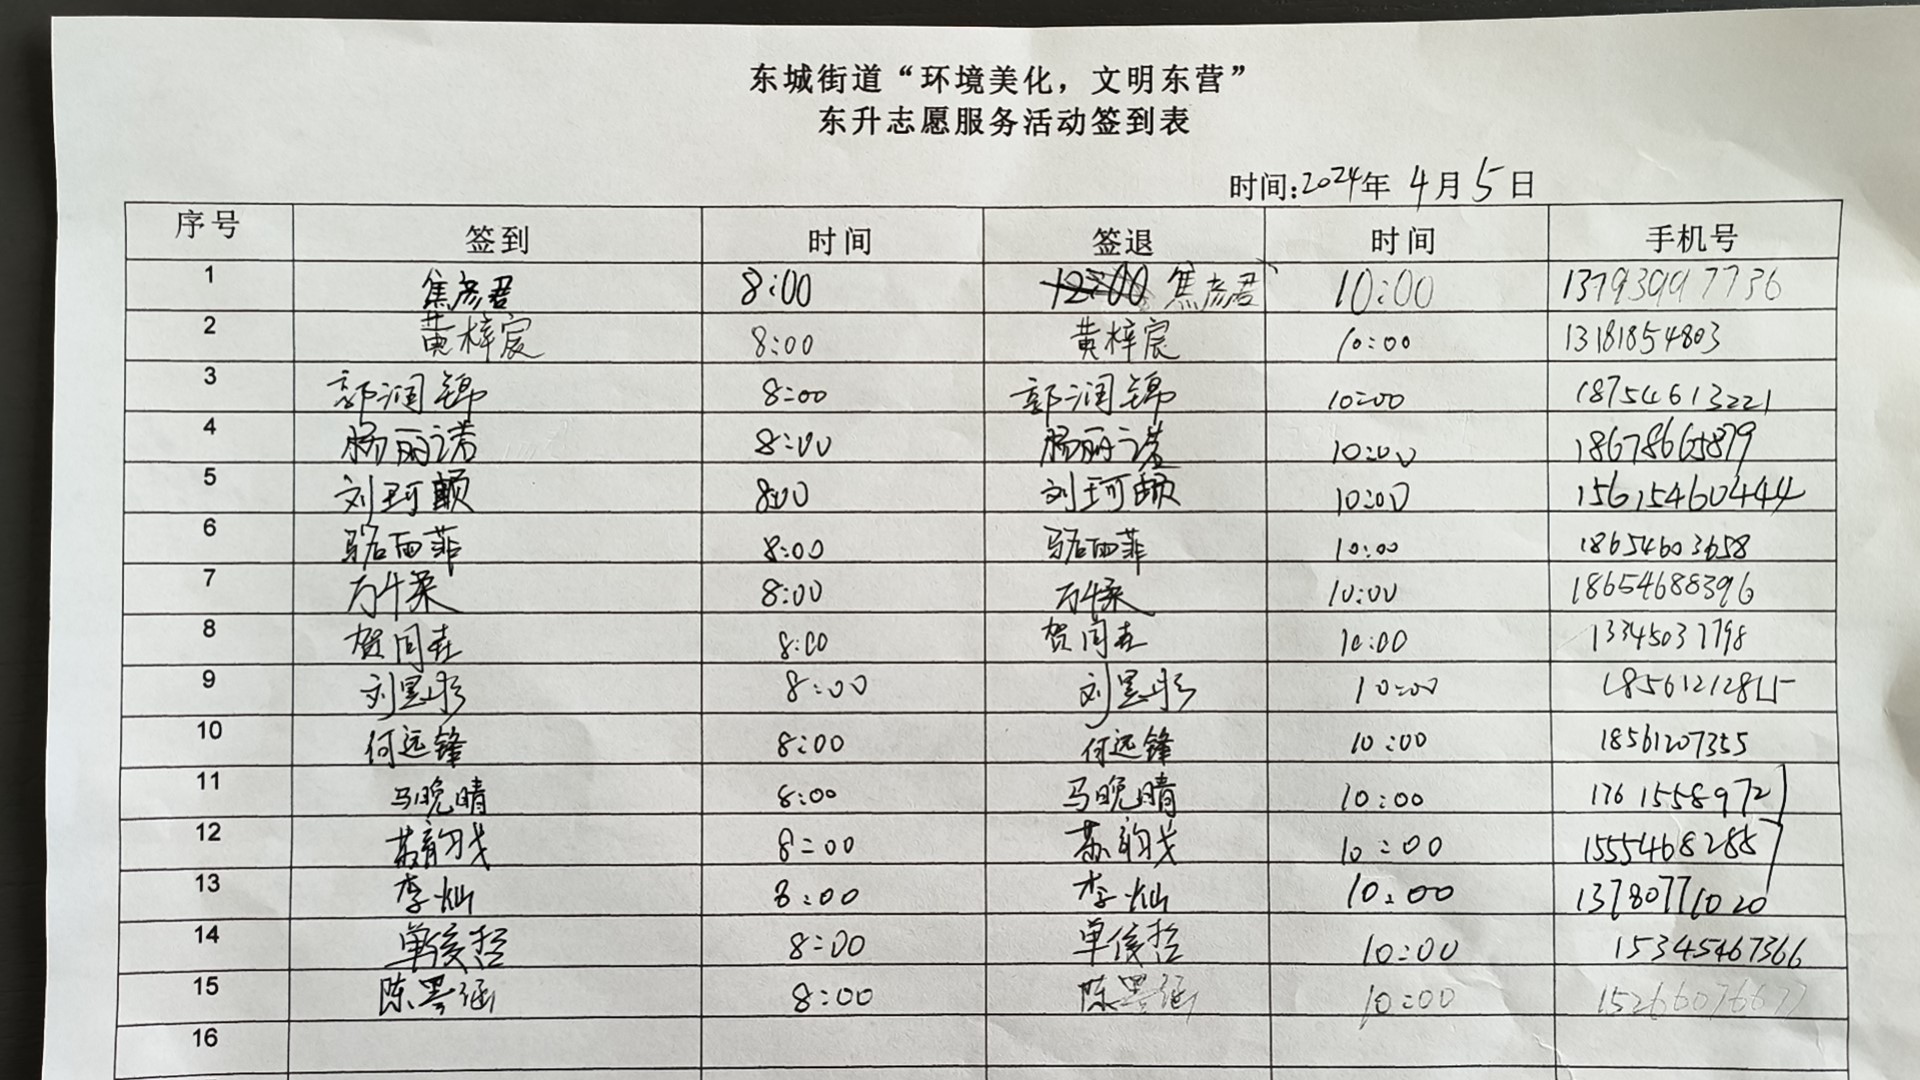 东城街道“环境美化，文明东营”
东升志愿服务活动签到表
时间:2024年 4月5日
序号 签到 时间 签退 时间 手机号
1 焦彦君 8:00 焦彦君 10:00 13793997736
2 黄梓宸 8:00 黄梓宸 10:00 13181854803
3 郭润锦 8:00 郭润锦 10:00 18754613221
4 杨丽诺 8:00 杨丽诺 10:00 18678665879
5 刘珂颐 8:00 刘珂颐 10:00 15615460444
6 骆雨菲 8:00 骆雨菲 10:00 18654603658
7 万千柔 8:00 万千柔 10:00 18654688396
8 贺闰垚 8:00 贺闰垚 10:00 13345037798
9 刘昱彤 8:00 刘昱彤 10:00 18561212815
10 何远锋 8:00 何远锋 10:00 18561207355
11 马晚晴 8:00 马晚晴 10:00 17615558972
12 苏韵戈 8:00 苏韵戈 10:00 1555468288
13 李灿 8:00 李灿 10:00 13780771020
14 单俊哲 8:00 单俊哲 10:00 15345467366
15 陈墨涵 8:00 陈墨涵 10:00 15266076677
16